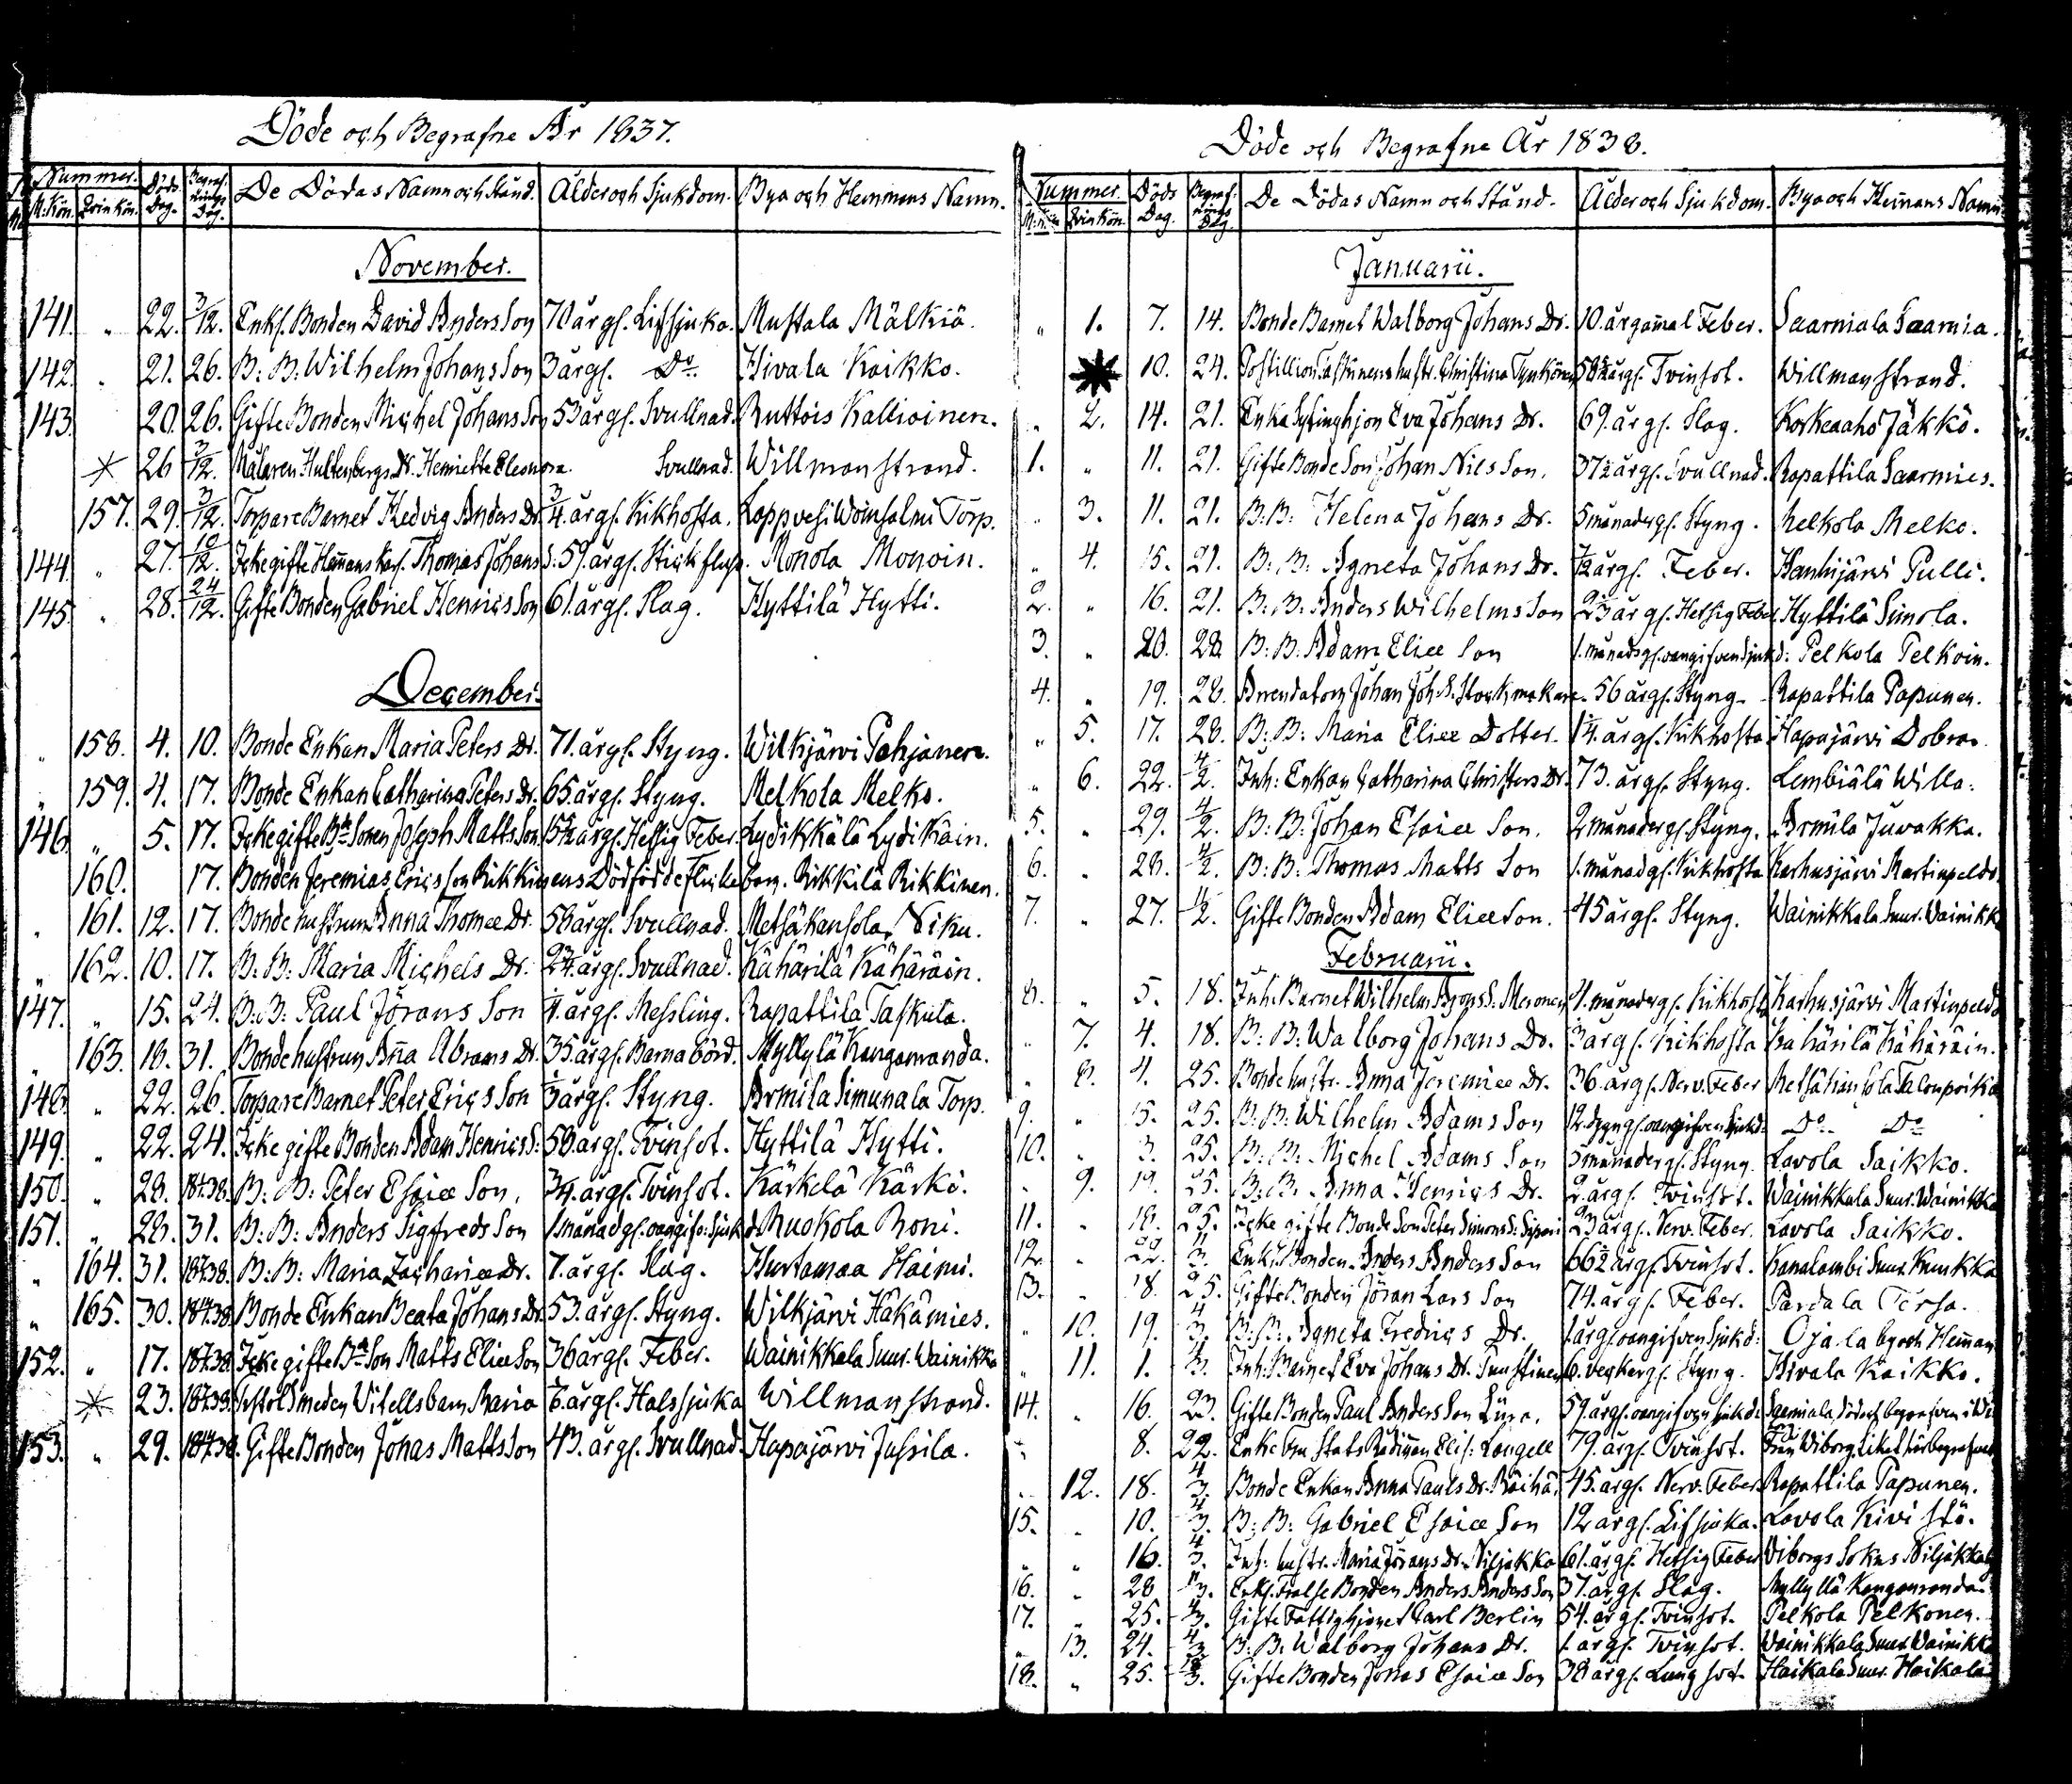 Döde och Begrafne År 1837.
Nummer. Döds Dag. Begraf-nings Dag. De Dödas Namn och Stånd. Ålder och Sjukdom. Bya och Hemmans Namn.
M: Kön. Qvin Kön.
November.
141. " 22. 3/12. Enkl. Bonden David Anders Son 70 årgl. Lifsjuka. Mustala Mälkiä.
142. " 21. 26. B: B: Wilhelm Johans Son 3 årgl. Do Hivala Kaikko.
143. 20. 26. Gifte Bonden Michel Johans Son 53 årgl. Svullnad. Ruttois Kallioinen.
* 26 3/12. Målaren Hultenbergs Dr. Henriette Eleonora. Svullnad. Willmanstrand.
157. 29. 3/12. Torpare Barnet Hedvig Anders Dr. 3/4. årgl. Kikhosta. Lappvesi Woinsalmi Torp.
144. " 27. 10/12. Icke gifte Hemans Karl. Thomas Johans S: 59. årgl. Stick fluss. Monola Monoin.
145. " 28. 24/12. Gifte Bonden Gabriel Henrics Son 61. årgl. Slag. Hyttilä Hytti.
December.
" 158. 4. 10. Bonde Enkan Maria Peters Dr. 71. årgl. Styng. Wilkjärvi Pahjanen.
" 159. 4. 17. Bonde Enkan Catharina Peters Dr. 65. årgl. Styng. Melkola Melko.
146. " 5. 17. Icke gifte Bde Sonen Joseph Matts Son årgl. Hetsig Feber. Lydikkälä Lydikäin.
160. 17. Bonden Jeremias Erics Son Rikkinens Dödfödde Flicke barn. Rikkilä Rikkinen.
" 161. 12. 17. Bonde hustrun Anna Thomæ Dr. 58 årgl. Svullnad. Metsäkansola Niku.
" 162. 10. 17. B: B: Maria Michels Dr. 2 3/4. årgl. Svullnad. Kähärilä Kähäräin.
147. " 15. 24. B: B: Paul Jörans Son årgl. Messling. Rapattila Taskula.
" 163. 18. 31. Bonde hustrun Aña Abrams Dr. 35. årgl. Barna börd. Myllylä Kangasranda.
148. " 22. 26. Torpare Barnet Peter Erics Son årgl. Styng. Armila Simunala Torp.
149. " 22. 24. Icke gifte Bonden Adam Henrics S: 58. årgl. Tvinsot. Hyttilä Hytti.
150. " 28. B: B: Peter Esaiæ Son. årgl. Tvinsot. Kärkelä Kärkö.
151. " 28. 31. B: B: Anders Sigfreds Son 1 månad gl. oangifv. Sjukd. Ruokola Roni.
" 164. 31. B: B: Maria Zachariæ Dr. 7. årgl. Slag. Hurtamaa Haimi.
" 165. 30. Bonde Enkan Beata Johans Dr. 53. årgl. Styng. Wilkjärvi Häkämies.
152. " 17. Icke gifte Bde Son Matts Eliæ Son 36 årgl. Feber. Wainikkala Suur. Wainikka
* 23. Smeden Vitells barn Maria årgl. Halssjuka Willmanstrand.
153. " 29. Gifte Bonden Johas Matts Son 43. årgl. Svullnad. Hapajärvi Jussila.
Döde och Begrafne År 1838.
Nummer. Döds Dag. Begraf-nings Dag. De Dödas Namn och Stånd. Ålder och Sjukdom. Bya och Hemans Namn
M: Kön Qvin Kön.
Januarii.
" 1. 7. 14. Bonde Barnet Walborg Johans Dr. 10. år gamal Feber. Saarniala Saarnia.
10. 24. Postillion hustr. Christina Tynkönen 58 1/2 årgl. Tvinsot. Willmanstrand.
" 2. 14. 21. Enka Sytinghjon Eva Johans Dr. 69. årgl. Slag. Korkeaaho Jäkkö.
1. " 11. 21. Gifte Bonde Son Johan Nils Son. 37 1/2 årgl. Svullnad. Rapattila Saarmies.
" 3. 11. 21. B: B: Helena Johans Dr. 5 månader gl. Styng. Melkola Melko.
" 4. 15. 21. B: B: Agneta Johans Dr. årgl. Feber. Hanhijärvi Pulli.
2. " 16. 21. B: B: Anders Wilhelms Son årgl. Hetsig Feber. Hyttilä Simola.
3. " 20. 28. B: B: Adam Eliæ Son 1. månads gl. oangifven Sjukd: Pelkola Pelkoin.
4. " 19. 28. Arrendatorn Johan Joh. S. Stockmakare 56 årgl. Styng. Rapattila Papunen.
" 5. 17. 28. B: B: Maria Eliæ Dotter. 1 1/4. årgl. Kikhosta Hapajärvi Dobras
" 6. 22. 4/2. Inh: Enkan Catharina Christers Dr. 73. årgl. Styng. Lembiälä Willa.
5. " 29. 4/2. B: B: Johan Esaiæ Son. 2 månader gl. Styng. Armila Juvakka.
6. " 28. 4/2. B: B: Thomas Matts Son 1. månad gl. Kikhosta Karhusjärvi Martinpeldo
7. " 27. Gifte Bonden Adam Eliæ Son. 45 årgl. Styng. Wainikkala Suur. Wainikka
Februarii.
8. " 5. 18. Inh: Barnet Wilhelm S. Meronen 4. månader gl. Kikhosta Karhusjärvi Martinpeldo
" 7. 4. 18. B: B: Walborg Johans Dr. 3 årgl. Kikhosta Kähärilä Kähäräin.
" 8. 4. 25. Bonde hustr. Anna Jeremiæ Dr. 36. årgl. Nerv. Feber Metsäkansola Talonpoika
9. " 15. 25. B: B: Wilhelm Adams Son 12. dygn gl. oangifven Sjukd: Do Do
10. " 3. 25. B: B: Michel Adams Son 3 månader gl. Styng. Lavola Saikko.
" 9. 19. 25. B: B: Anna Henrics Dr. 2. årgl. Tvinsot. Wainikkala Suur. Wainikka
11. " 18. 25. Icke gifte Bonde Son Peter Simons S: årgl. Nerv. Feber. Lavola Saikko.
12. " 22. Enkl. Bonden Anders Anders Son 66 1/2 årgl. Tvinsot. Kanalambi Suur Kunkka
13. " 18. 25. Gifte Bonden Jöran Lars Son 74. årgl. Feber. Pardala Tersa.
" 10. 19. B: B: Agneta Fredrics Dr. 1. årgl. oangifven Sjukd: Ojala by och Heman
" 11. 1. Inh: Barnet Eva Johans Dr. 6. veckor gl. Styng. Hivala Kaikko.
14. " 16. 23. Gifte Bonden Paul Anders Son 59. årgl. oangifven sjukd: Saarniala, död och begrafven i
" 8. 22. Enke Fru Stats Rådiñan Elis: Langell 79. årgl. Tvinsot. Från Wiborg, Liket här begrafvet
" 12. 18. 4/3. Bonde Enkan Anna Pauls Dr. Räihä. 45. årgl. Nerv. Feber. Rapattila Papunen.
15. " 10. 4/3. B: B: Gabriel Esaiæ Son 12 årgl. Lifsjuka. Lavola Kivistö.
" " 16. 4/3. Inh: hustr. Maria Jörans Dr. Niljakka 61. årgl. Hetsig Feber Viborgs Sokn Niljakkala
16. " 28 Enkl. Frälse Bonden Anders Anders Son 37. årgl. Slag. Myllylä Kangasranda.
17. " 25. 4/3. Gifte Fattighjonet Carl Berlin 54. årgl. Tvinsot. Pelkola Pelkonen.
" 13. 24. 4/3. B: B: Walborg Johans Dr. 1. årgl. Tvinsot. Wainikkala Suur Wainikka
18. " 25. Gifte Bonden Jonas Esaiæ Son 38 årgl. Lungsot. Haikala Suur. Haikala